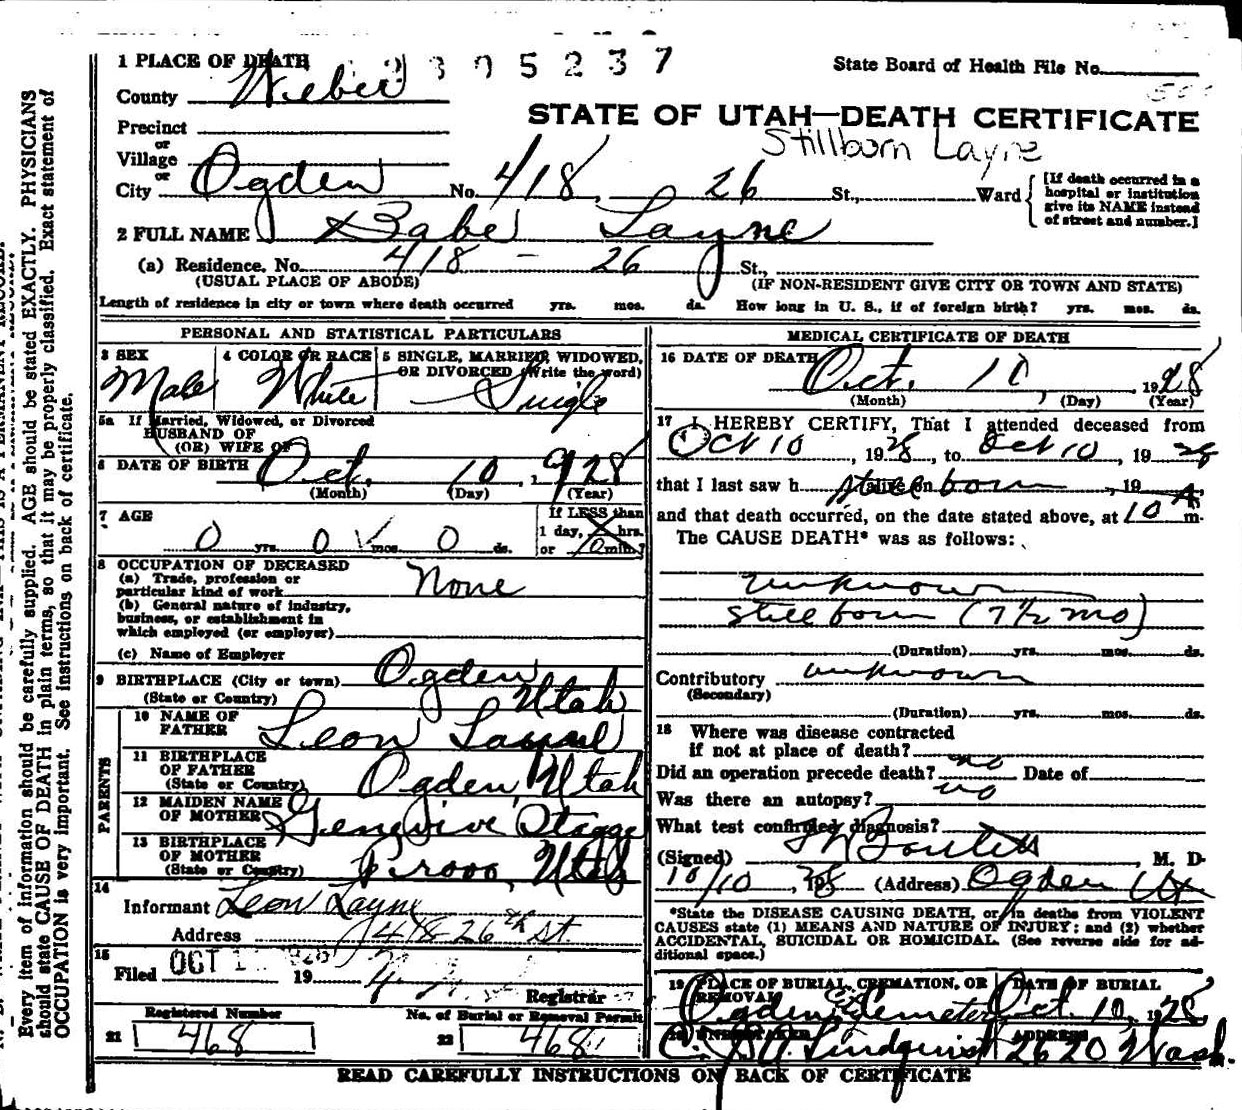 1 PLACE OF DEATH
2305237
State Board of Health File No.
County Weber
STATE OF UTAH—DEATH CERTIFICATE
Precinct
or
Stillborn Layne
Village
or
City Ogden No. 418 26 St., Ward
[If death occurred in a
hospital or institution
give its NAME instead
of street and number.]
2 FULL NAME Babe Layne
(a) Residence. No. 418 - 26 St.,
(USUAL PLACE OF ABODE) (IF NON-RESIDENT GIVE CITY OR TOWN AND STATE)
Length of residence in city or town where death occurred yrs. mos. ds. How long in U. S., if of foreign birth? yrs. mos. ds.
PERSONAL AND STATISTICAL PARTICULARS
3 SEX 4 COLOR OR RACE 5 SINGLE, MARRIED, WIDOWED,
OR DIVORCED (Write the word)
Male White Single
5a If Married, Widowed, or Divorced
HUSBAND OF
(OR) WIFE OF
6 DATE OF BIRTH Oct. 10, 1928
(Month) (Day) (Year)
7 AGE If LESS than
1 day, hrs.
0 yrs. 0 mos. 0 ds. or 0 min.?
8 OCCUPATION OF DECEASED
(a) Trade, profession or
particular kind of work None
(b) General nature of industry,
business, or establishment in
which employed (or employer)
(c) Name of Employer
9 BIRTHPLACE (City or town) Ogden
(State or Country) Utah
PARENTS
10 NAME OF
FATHER Leon
11 BIRTHPLACE
OF FATHER
(State or Country) Ogden, Utah
12 MAIDEN NAME
OF MOTHER Genevive Stagge
13 BIRTHPLACE
OF MOTHER
(State or Country) Provo, Utah
14
Informant Leon Layne
Address 418 26th St
15
Filed OCT 1928 19
Registrar
Registered Number No. of Burial or Removal Permit
21 468 22 468
MEDICAL CERTIFICATE OF DEATH
16 DATE OF DEATH
Oct. 10, 1928
(Month) (Day) (Year)
17 I HEREBY CERTIFY, That I attended deceased from
Oct 10, 1928, to Oct 10, 1928
that I last saw h alive on stillborn, 19
and that death occurred, on the date stated above, at 10 A m.
The CAUSE DEATH* was as follows:
unknown
stillborn (7 1/2 mo)
(Duration) yrs. mos. ds.
Contributory unknown
(Secondary)
(Duration) yrs. mos. ds.
18 Where was disease contracted
if not at place of death?
Did an operation precede death? no Date of
Was there an autopsy? no
What test confirmed diagnosis?
(Signed) M. D.
10/10, 1928 (Address) Ogden Ut
*State the DISEASE CAUSING DEATH, or in deaths from VIOLENT
CAUSES state (1) MEANS AND NATURE OF INJURY; and (2) whether
ACCIDENTAL, SUICIDAL OR HOMICIDAL. (See reverse side for ad-
ditional space.)
19 PLACE OF BURIAL, CREMATION, OR DATE OF BURIAL
REMOVAL
Ogden Cemetery Oct. 10, 1928
20 UNDERTAKER ADDRESS
Lindquist 2620 Wash.
READ CAREFULLY INSTRUCTIONS ON BACK OF CERTIFICATE
Every item of information should be carefully supplied. AGE should be stated EXACTLY. PHYSICIANS
should state CAUSE OF DEATH in plain terms, so that it may be properly classified. Exact statement of
OCCUPATION is very important. See instructions on back of certificate.